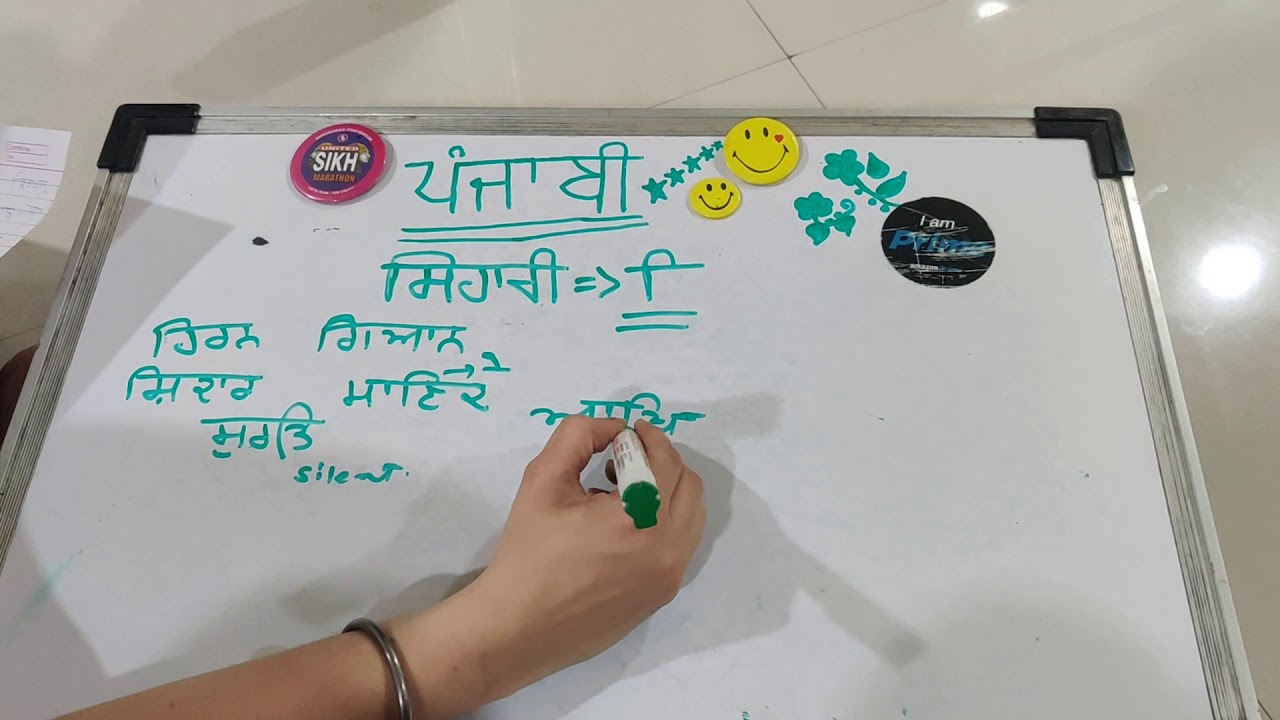 UNITED
SIKH
MARATHON
ਪੰਜਾਬੀ
I am
Prime
amazon
ਸਿਹਾਰੀ => ਿ
ਹਿਰਨ ਗਿਆਨ
→ 2
ਸ਼ਿਕਾਰ ਮਾਣਿਕ
ਸੁਰਤਿ
silent.